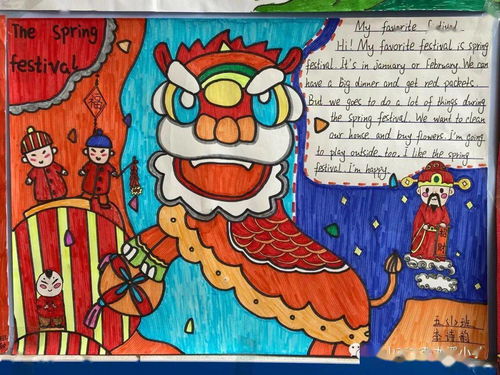 The Spring
festival
福
My favorite
Hi! My favorite festival is spring
festival. It's in January or February. We can
have a big dinner and get red packets.
But we goes to do a lot of things during
the spring festival. We want to clean
our house and buy flowers. I'm going
to play outside too. I like the spring
festival. I'm happy.
招财
五(1)班